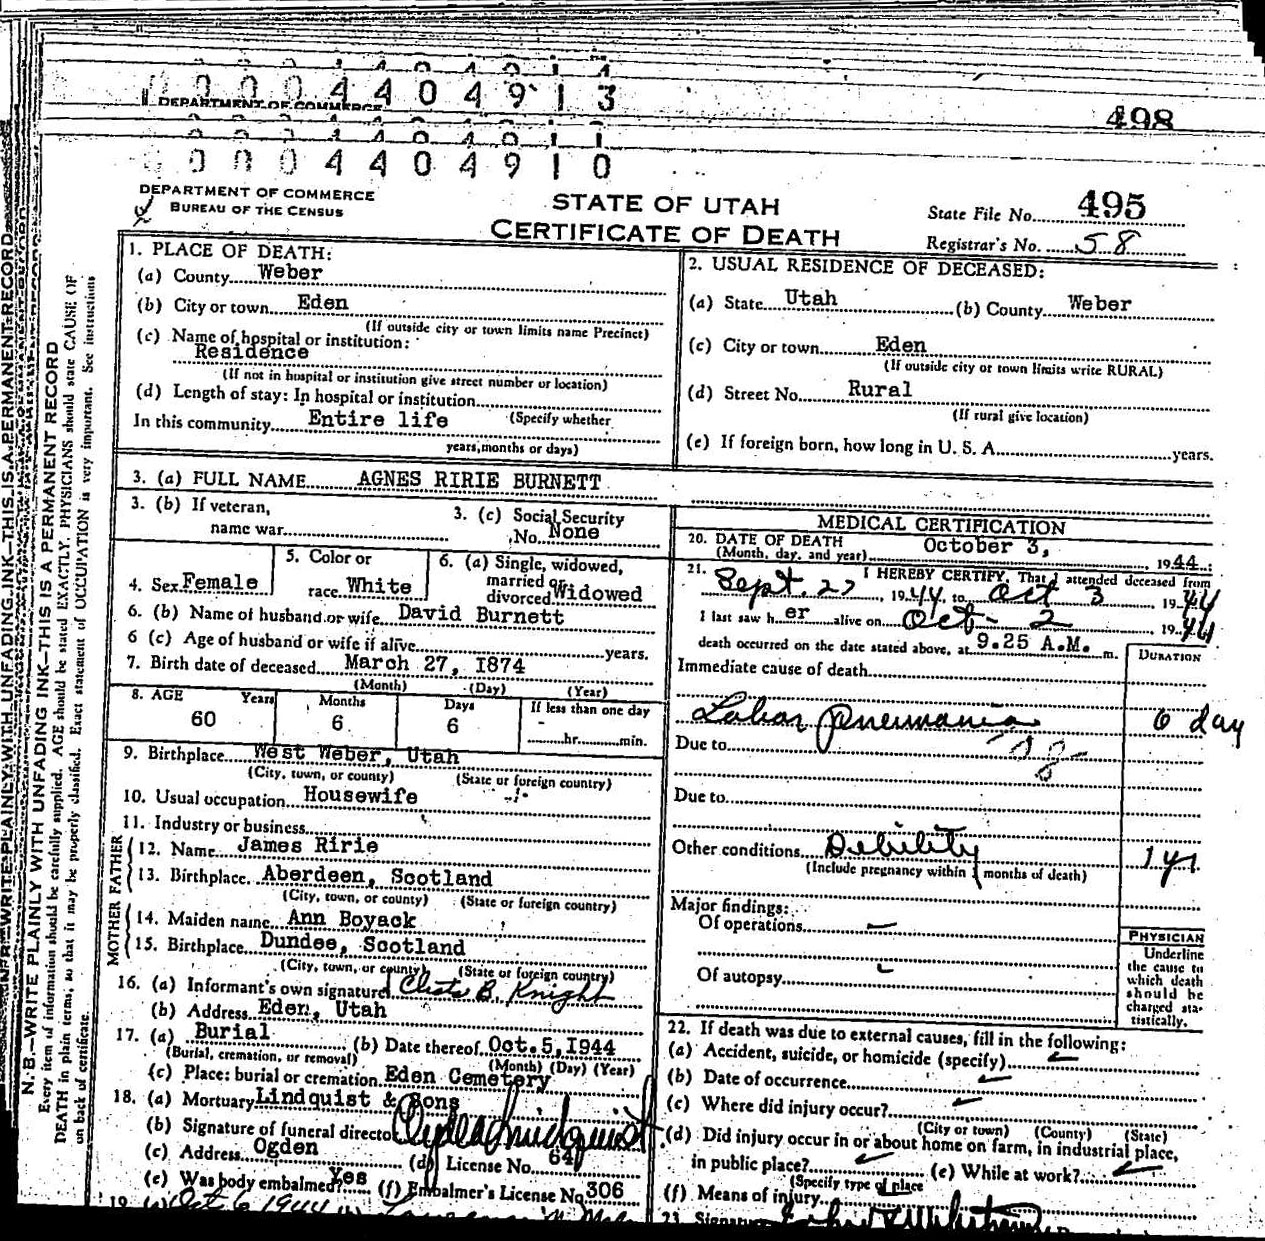 0 0 0 4 4 0 4 9 1 3
DEPARTMENT OF COMMERCE
498
0 0 0 4 4 0 4 9 1 0
DEPARTMENT OF COMMERCE
BUREAU OF THE CENSUS
STATE OF UTAH
CERTIFICATE OF DEATH
State File No. 495
Registrar's No. 58
N. B.—WRITE PLAINLY WITH UNFADING INK—THIS IS A PERMANENT RECORD
Every item of information should be carefully supplied. AGE should be stated EXACTLY. PHYSICIANS should state CAUSE OF
DEATH in plain terms, so that it may be properly classified. Exact statement of OCCUPATION is very important. See instructions
on back of certificate.
1. PLACE OF DEATH:
(a) County Weber
(b) City or town Eden
(If outside city or town limits name Precinct)
(c) Name of hospital or institution:
Residence
(If not in hospital or institution give street number or location)
(d) Length of stay: In hospital or institution
In this community Entire life (Specify whether
years, months or days)
2. USUAL RESIDENCE OF DECEASED:
(a) State Utah (b) County Weber
(c) City or town Eden
(If outside city or town limits write RURAL)
(d) Street No. Rural
(If rural give location)
(e) If foreign born, how long in U. S. A. years.
3. (a) FULL NAME AGNES RIRIE BURNETT
3. (b) If veteran,
name war
3. (c) Social Security
No. None
4. Sex Female
5. Color or
race White
6. (a) Single, widowed,
married or
divorced Widowed
6. (b) Name of husband or wife David Burnett
6 (c) Age of husband or wife if alive years.
7. Birth date of deceased March 27, 1874
(Month) (Day) (Year)
8. AGE Years Months Days If less than one day
60 6 6 -
hr. min.
9. Birthplace West Weber, Utah
(City, town, or county) (State or foreign country)
10. Usual occupation Housewife
11. Industry or business
FATHER
12. Name James Ririe
13. Birthplace Aberdeen, Scotland
(City, town, or county) (State or foreign country)
MOTHER
14. Maiden name Ann Boyack
15. Birthplace Dundee, Scotland
(City, town, or county) (State or foreign country)
16. (a) Informant's own signature B. Knight
(b) Address Eden, Utah
17. (a) Burial (b) Date thereof Oct. 5, 1944
(Burial, cremation, or removal) (Month) (Day) (Year)
(c) Place: burial or cremation Eden Cemetery
18. (a) Mortuary Lindquist & Sons
(b) Signature of funeral director Lindquist
(c) Address Ogden (d) License No. 64
(e) Was body embalmed? Yes (f) Embalmer's License No. 306
19. (a) Oct 6 1944 (b)
MEDICAL CERTIFICATION
20. DATE OF DEATH
(Month, day, and year) October 3, 1944
21. I HEREBY CERTIFY, That I attended deceased from
Sept. 27, 1944, to Oct 3 1944
I last saw her alive on Oct- 2 1944
death occurred on the date stated above, at 9.25 A.M. m.
DURATION
Immediate cause of death
Lobar pneumonia 6 day
Due to
Due to
Other conditions Debility 1 yr.
(Include pregnancy within months of death)
Major findings:
Of operations
Of autopsy
PHYSICIAN
Underline
the cause to
which death
should be
charged sta-
tistically.
22. If death was due to external causes, fill in the following:
(a) Accident, suicide, or homicide (specify)
(b) Date of occurrence
(c) Where did injury occur?
(City or town) (County) (State)
(d) Did injury occur in or about home on farm, in industrial place,
in public place? (e) While at work?
(Specify type of place
(f) Means of injury
23. Signature